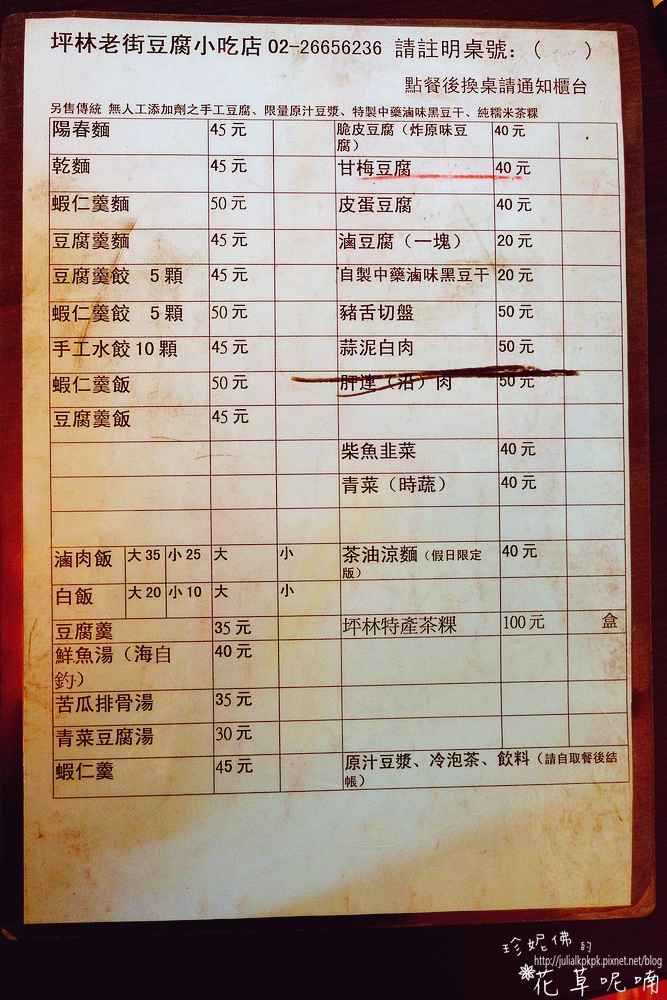 坪林老街豆腐小吃店 02-26656236 請註明桌號：（ ）
點餐後換桌請通知櫃台
另售傳統 無人工添加劑之手工豆腐、限量原汁豆漿、特製中藥滷味黑豆干、純糯米茶粿
陽春麵 45 元 脆皮豆腐（炸原味豆 40 元
腐）
乾麵 45 元 甘梅豆腐 40 元
蝦仁羹麵 50 元 皮蛋豆腐 40 元
豆腐羹麵 45 元 滷豆腐（一塊） 20 元
豆腐羹餃 5 顆 45 元 自製中藥滷味黑豆干 20 元
蝦仁羹餃 5 顆 50 元 豬舌切盤 50 元
手工水餃 10 顆 45 元 蒜泥白肉 50 元
蝦仁羹飯 50 元 肝連（沿）肉 50 元
豆腐羹飯 45 元
柴魚韭菜 40 元
青菜（時蔬） 40 元
滷肉飯 大 35 小 25 大 小 茶油涼麵（假日限定 40 元
版）
白飯 大 20 小 10 大 小
豆腐羹 35 元 坪林特產茶粿 100 元 盒
鮮魚湯（海自 40 元
釣）
苦瓜排骨湯 35 元
青菜豆腐湯 30 元
蝦仁羹 45 元 原汁豆漿、冷泡茶、飲料（請自取餐後結
帳）
珍妮佛的
http://julialkpkpk.pixnet.net/blog
花草呢喃